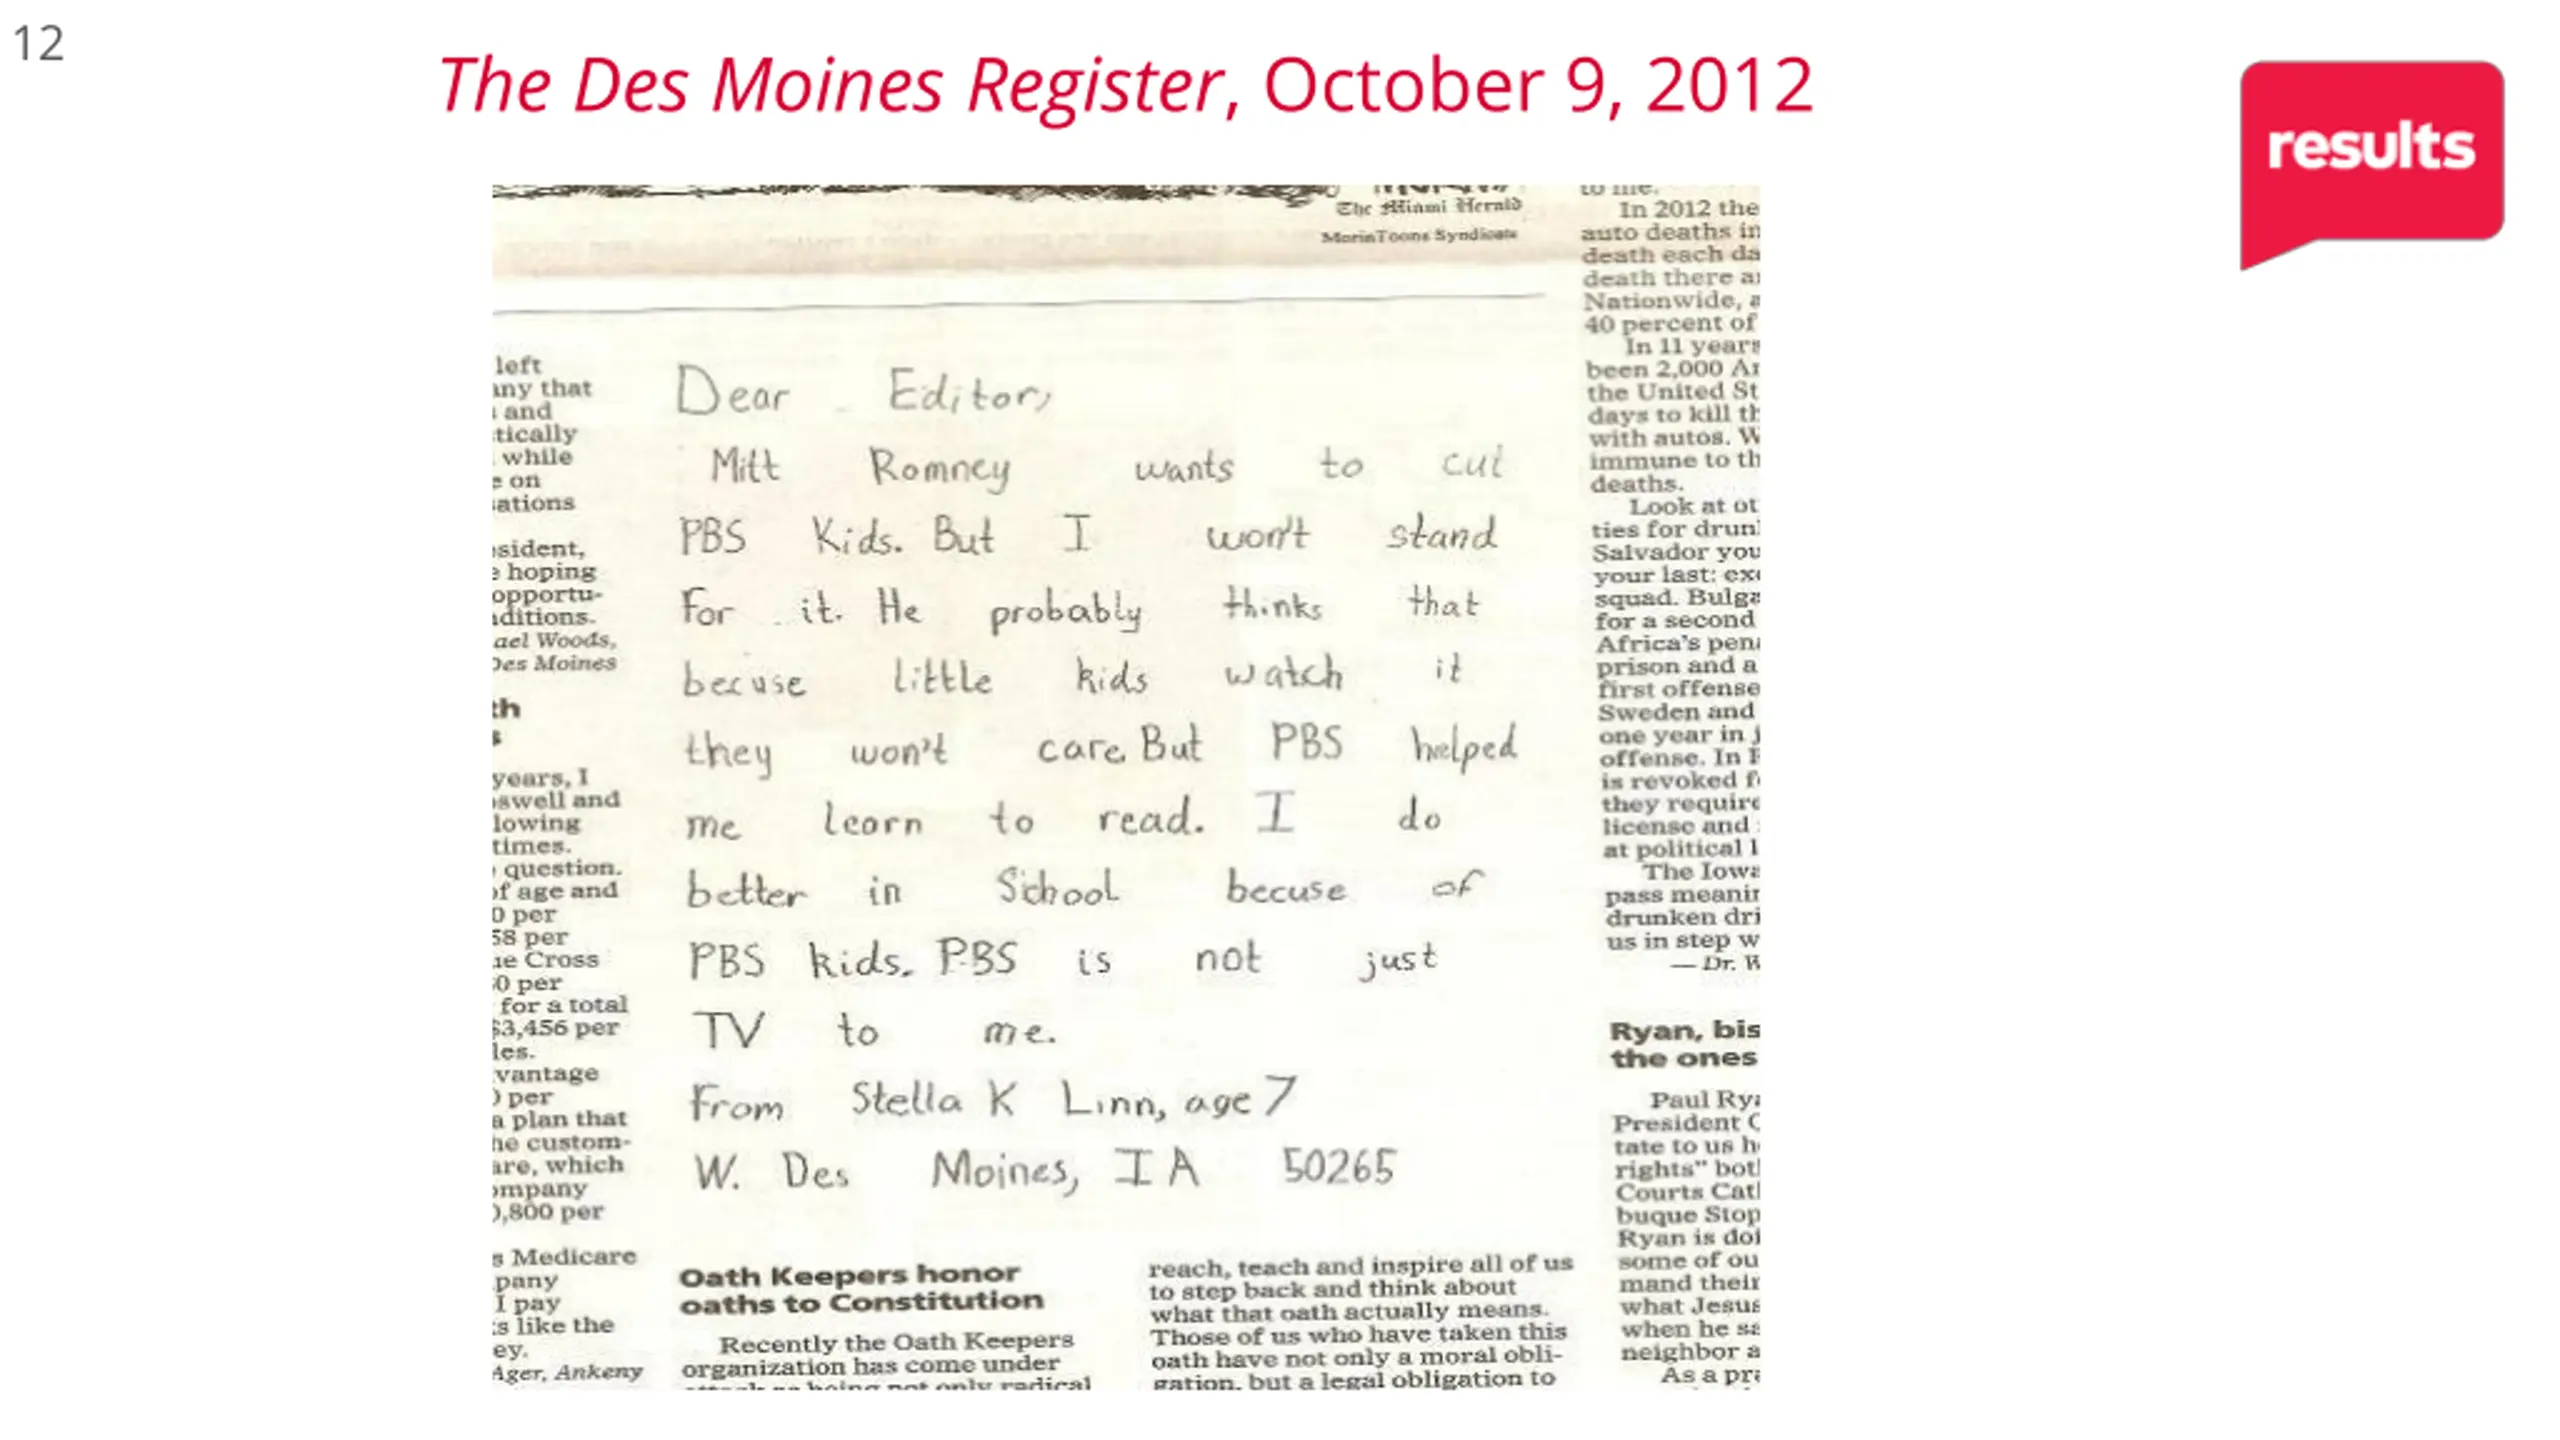 12
The Des Moines Register, October 9, 2012
results
The Miami Herald
MorinToons Syndicate
left
any that
and
tically
while
e on
sations
esident,
e hoping
opportu-
ditions.
ael Woods,
Des Moines
th
s
years, I
swell and
lowing
times.
question.
of age and
0 per
58 per
ue Cross
0 per
for a total
$3,456 per
les.
vantage
0 per
a plan that
he custom-
are, which
ompany
0,800 per
s Medicare
pany
I pay
s like the
ey.
Ager, Ankeny
Dear Editor,
Mitt Romney wants to cut
PBS Kids. But I won't stand
For it. He probably thinks that
becuse little kids watch it
they won't care. But PBS helped
me learn to read. I do
better in School becuse of
PBS kids. PBS is not just
TV to me.
From Stella K Linn, age 7
W. Des Moines, IA 50265
Oath Keepers honor
oaths to Constitution
Recently the Oath Keepers
organization has come under
reach, teach and inspire all of us
to step back and think about
what that oath actually means.
Those of us who have taken this
oath have not only a moral obli-
gation, but a legal obligation to
to me.
In 2012 the
auto deaths in
death each da
death there ar
Nationwide, a
40 percent of
In 11 years
been 2,000 Ar
the United St
days to kill th
with autos. W
immune to th
deaths.
Look at ot
ties for drun
Salvador you
your last: exe
squad. Bulga
for a second
Africa's pena
prison and a
first offense
Sweden and
one year in j
offense. In
is revoked f
they require
license and
at political l
The Iowa
pass meanin
drunken dri
us in step w
— Dr. W
Ryan, bis
the ones
Paul Rya
President O
tate to us h
rights" both
Courts Cath
buque Stop
Ryan is doi
some of ou
mand their
what Jesus
when he sa
neighbor a
As a pra